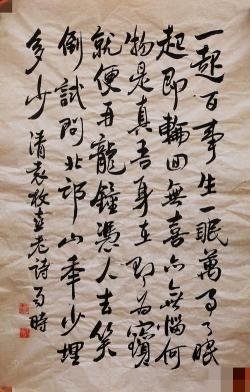 一起百事生一眠萬事了眠
起即輪回無喜亦無惱何
物是真吾身在即為寶
就便再龍鐘憑人去笑
倒試問北邙山年少埋
多少 清袁枚喜老詩 時